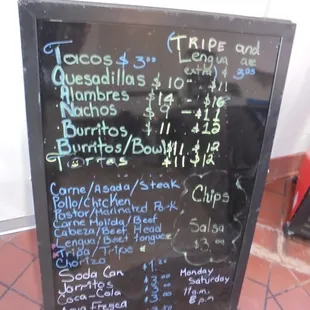 Tacos $3.00 (TRIPE and
Lengua are
extra) $3.95
Quesadillas $10 - $11
Alambres $14 - $16
Nachos $9 - $11
Burritos $11 $12
Burritos/Bowl $11 $12
Tortas $11 $12
Carne/Asada/Steak
Pollo/Chicken
Pastor/Marinated Pork
Carne Molida/Beef
Cabeza/Beef Head
Lengua/Beef Tongue
Tripa/Tripe
Chorizo
Chips
Salsa
$3.00
Soda Can
Jarritos $3.00
Coca-Cola $3.00
Agua Fresca
Monday
Saturday
11a.m.
8p.m.